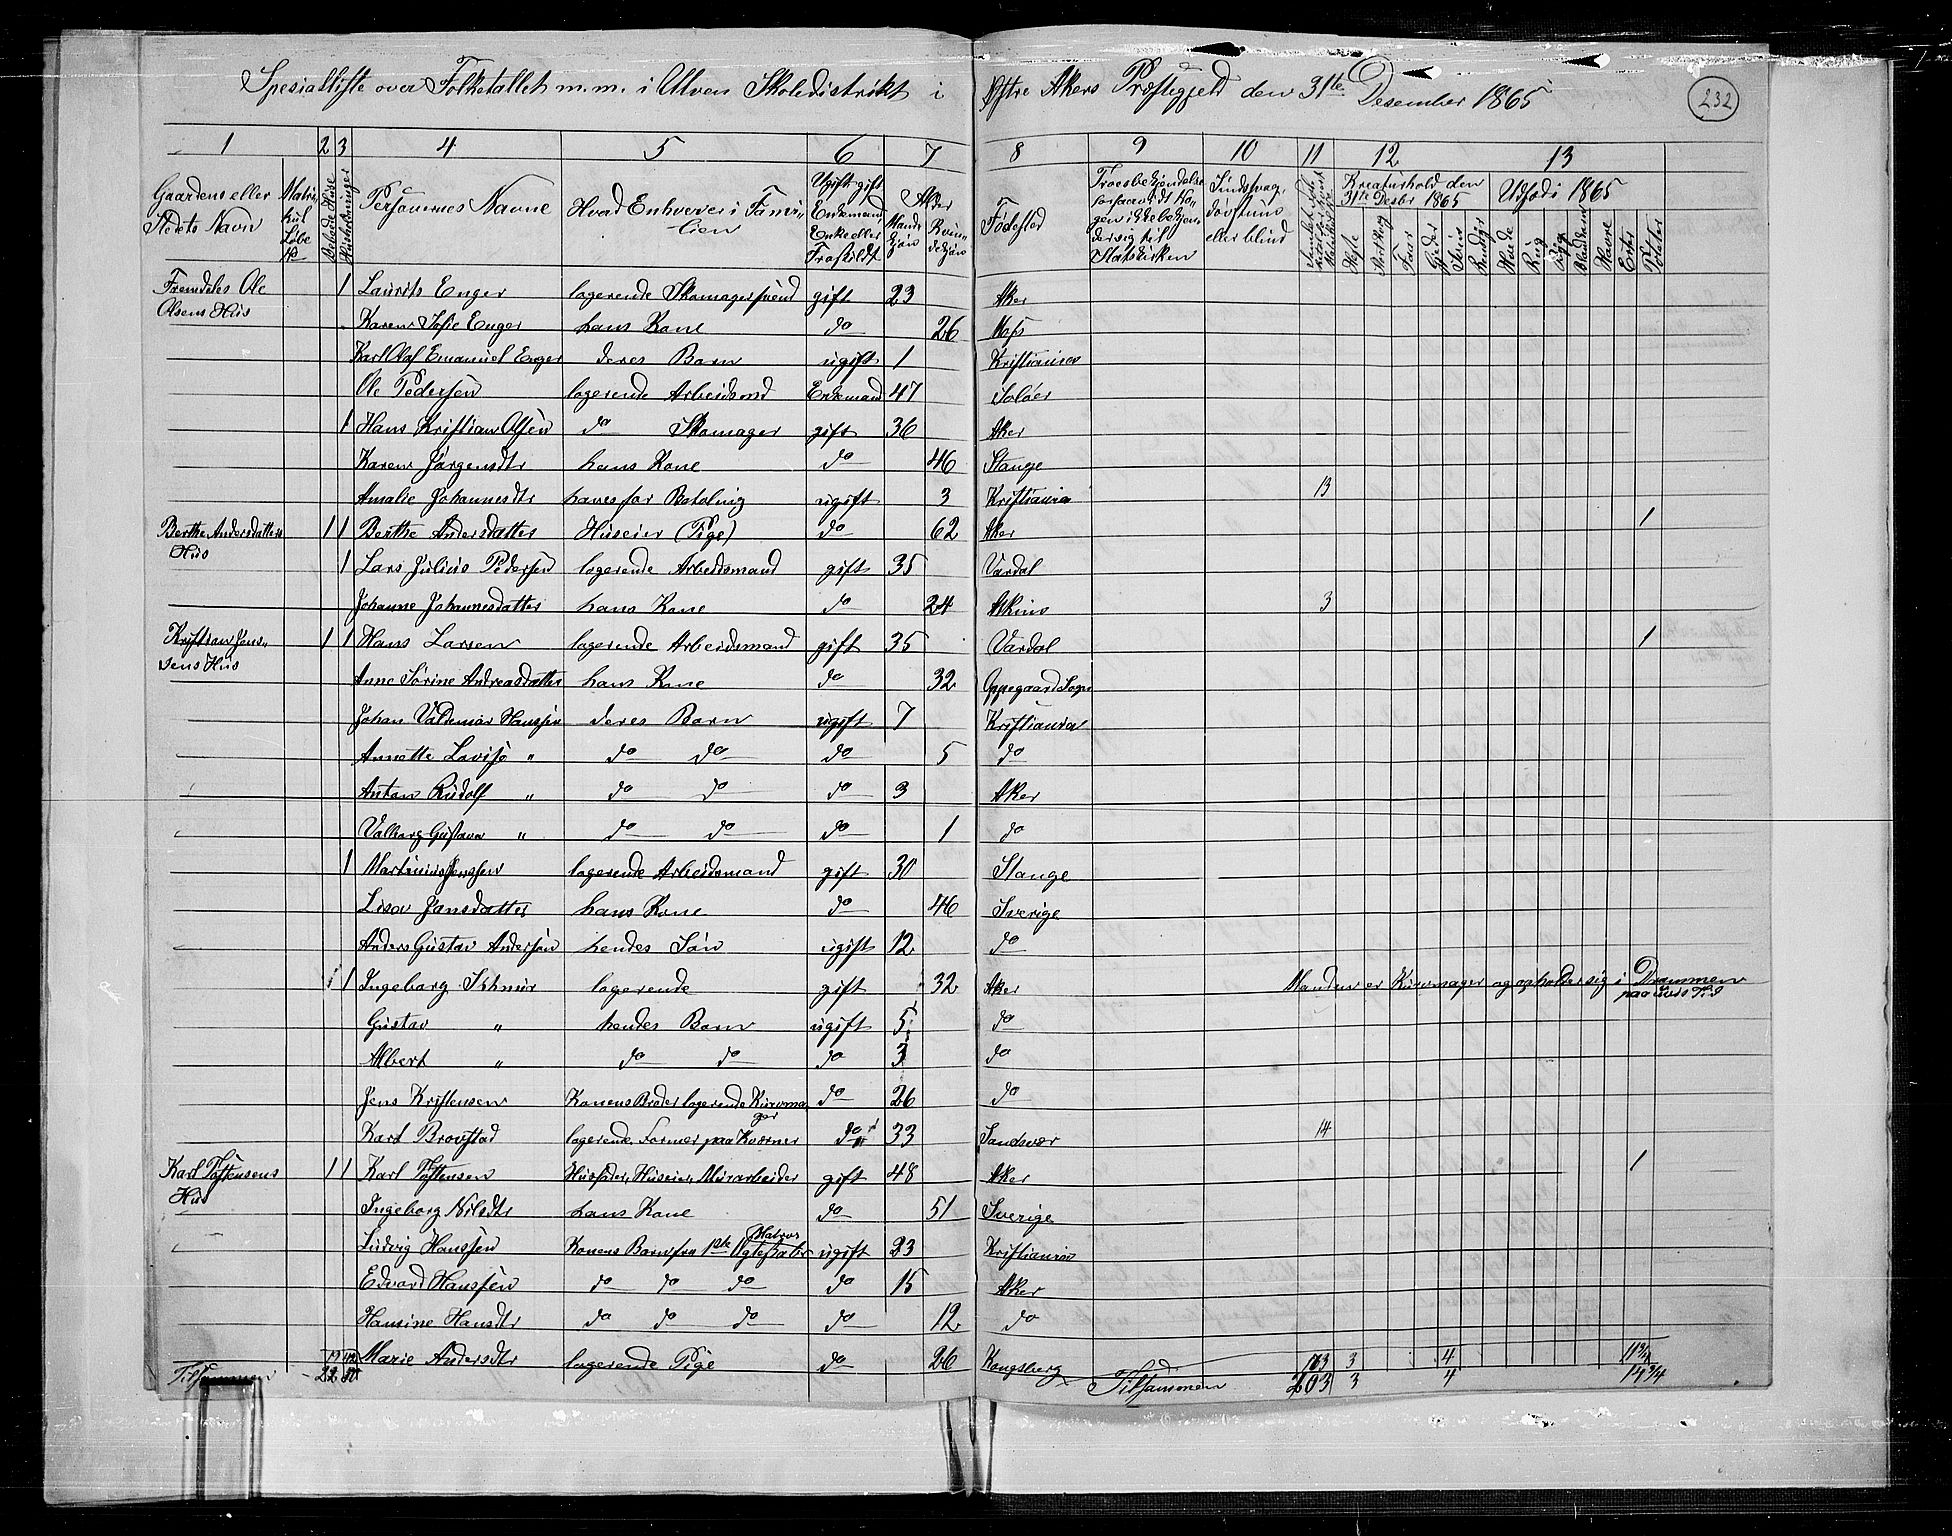 232
Spesialliste over Folketallet m.m. i Alven Skoledistrikt i Østre Akers Præstegjeld den 31te Desember 1865
1 2 3 4 5 6 7 8 9 10 11 12 13
Gaardens eller Stedets Navn
Matrikul Løbe No
Beboede Huse
Husholdninger
Personernes Navne
Hvad Enhver er i Familien
Ugift, gift Enkemand Enke eller Fraskildt
Alder
Mandkjøn
Kvindekjøn
Fødested
Troesbekjendelse forsaavidt Nogen ikke bekjender sig til Statskirken
Sindssvag, døvstum eller blind
Kreaturhold den 31te Desbr 1865
Heste Faar Gjeder Sviin Rensdyr
Udsæd i 1865
Hvede Rug Byg Blandkorn Havre Erter Poteter
Fremdeles Ole Olsens Hus 1 Laurits Enger logerende Skomagersvend gift 23 Aker
Karen Sofie Enger hans Kone do 26 Moss
Karl Olaf Emanuel Enger deres Barn ugift 1 Kristiania
Ole Pedersen logerende Arbeidsmd Enkemand 47 Soløer
1 Hans Kristian Olsen do Skomager gift 36 Aker
Karen Jørgensdtr hans Kone do 46 Stange
Amalie Johannesdtr haves for Betaling ugift 3 Kristiania 13
Berthe Andersdatters Hus 1 1 Berthe Andersdatter Huseier (Pige) do 62 Aker 1
1 Lars Julius Pedersen logerende Arbeidsmand gift 35 Vardal
Johanne Johannesdatter hans Kone do 24 3
Kristian Jensens Hus 1 1 Hans Larsen logerende Arbeidsmand gift 35 Vardal 1
Anne Sørine Andreasdatter hans Kone do 32 Oppegaard Sogn
Johan Valdemar Hanssen deres Barn ugift 7 Kristiania
Annette Lovise " do do do 5 do
Anton Rudolf " do do do 3 Aker
Valborg Gustava " do do do 1 do
1 Martinius Jenssen logerende Arbeidsmand gift 30 Stange
Lisa Jansdatter hans Kone do 46 Sverige
Anders Gustav Andersen hendes Søn ugift 12 do
1 1 Ingeborg logerende gift 32 Aker Manden er Kurvmager og opholder sig i Drammen paa uvis Tid
Gustav " hendes Barn ugift 5 do
Albert " do do do 3 do
Jens Kristensen Konens Broder logerende Kurvmager do 26 do
Karl Brovstad logerende Former paa Kværner do 33 Sandsvær 14
Karl Tostensens Hus 1 1 Karl Tostensen Husfader, Huseier, Murarbeider gift 48 Aker 1
Ingeborg Nilsdtr hans Kone do 51 Sverige
Ludvig Hanssen Konens Barn fra 1ste Ægteskab Matros ugift 23 Kristiania
Edvard Hanssen do do do do 15 Aker
Hansine Hansdtr do do do do 12 do
Marie Andersdtr logerende Pige do 26 Kongsberg 3 4
Tilsammen 22 Tilsammen 203 3 4 14 3/4